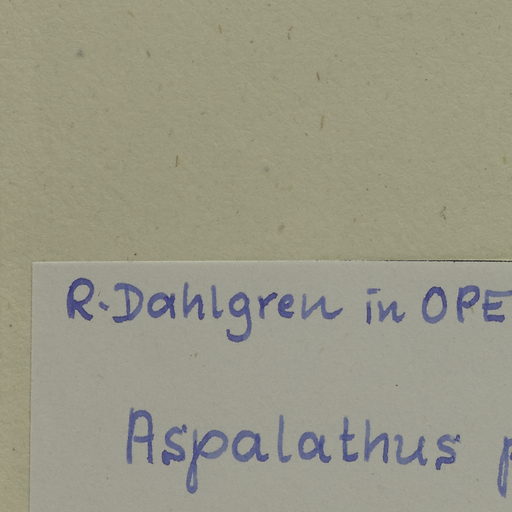 R. Dahlgren in OPE
Aspalathus p